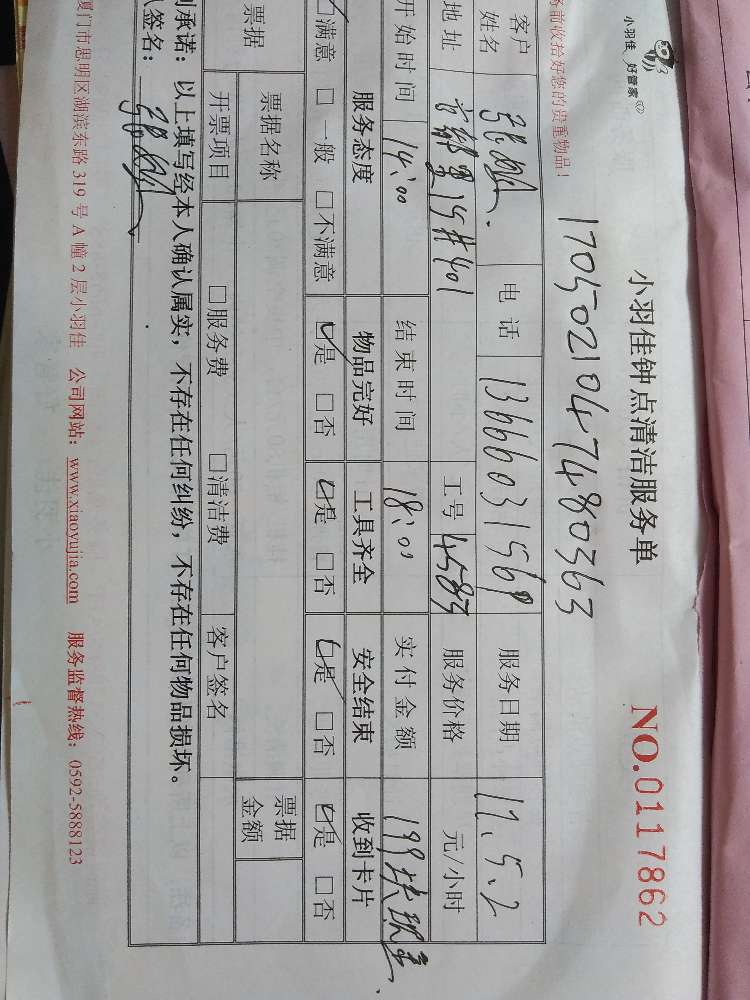 小羽佳 好管家
小羽佳钟点清洁服务单
NO.0117862
1705021047480363
务前收拾好您的贵重物品!
客户姓名 电话 13666031569 服务日期 17.5.2
地址 15#401 工号 4583 服务价格 元/小时
开始时间 14:00 结束时间 18:00 实付金额 199块现金
服务态度 物品完好 工具齐全 安全结束 收到卡片
☑满意 □一般 □不满意 ☑是 □否 ☑是 □否 ☑是 □否 ☑是 □否
票据 票据名称 票据金额
开票项目 □服务费 □清洁费 客户签名
承诺:以上填写经本人确认属实,不存在任何纠纷,不存在任何物品损坏。
签名:
厦门市思明区湖滨东路 319 号 A 幢 2 层小羽佳 公司网站:www.xiaoyujia.com 服务监督热线:0592-5888123